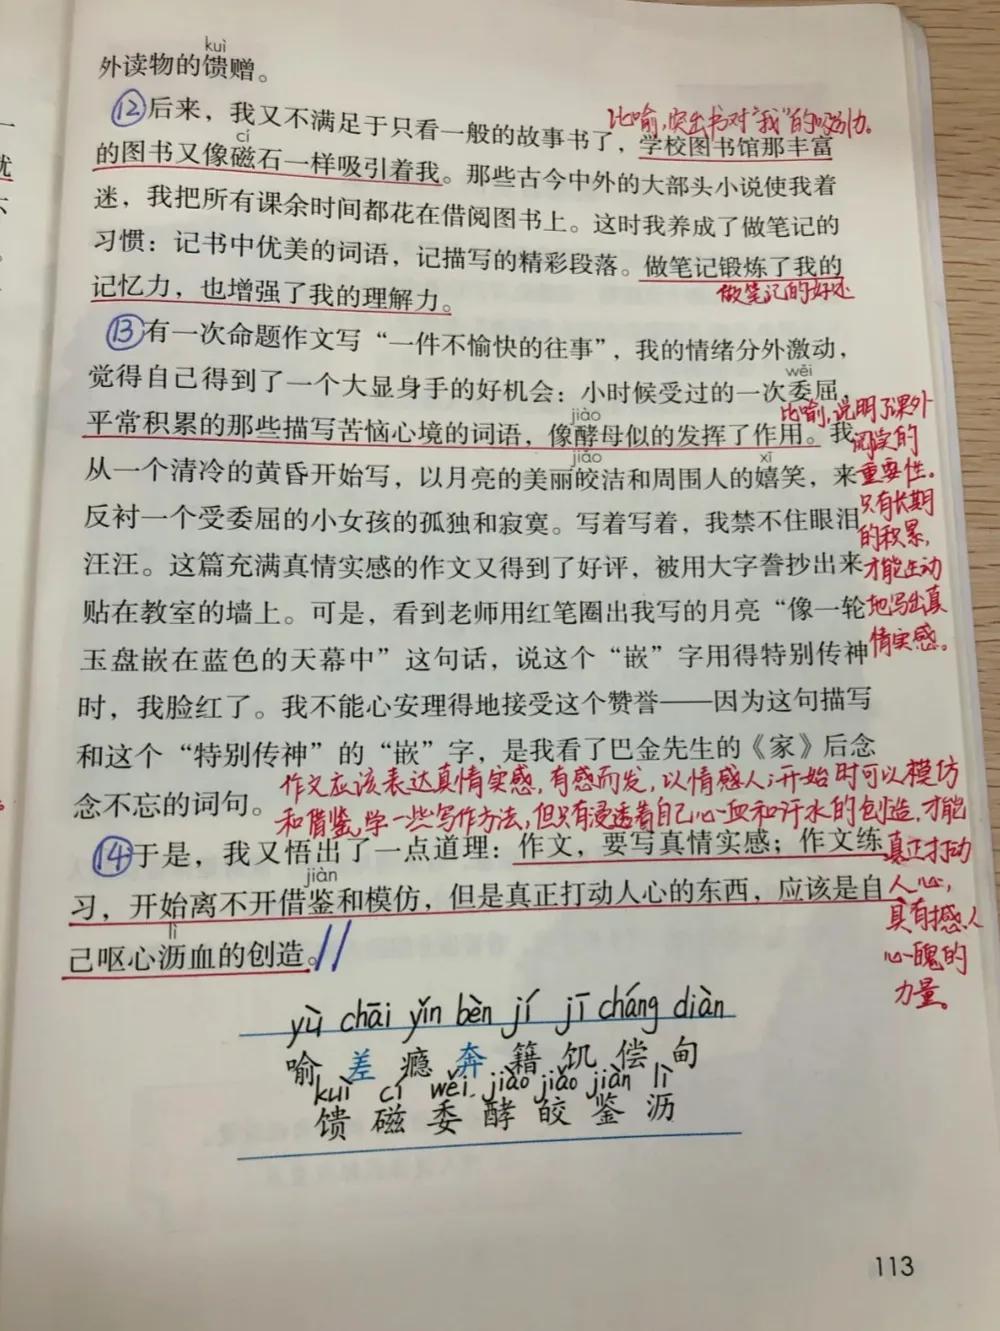 kuì
外读物的馈赠。
⑫后来，我又不满足于只看一般的故事书了，学校图书馆那丰富
比喻，突出书对“我”的吸引力。
cí
的图书又像磁石一样吸引着我。那些古今中外的大部头小说使我着
迷，我把所有课余时间都花在借阅图书上。这时我养成了做笔记的
习惯：记书中优美的词语，记描写的精彩段落。做笔记锻炼了我的
记忆力，也增强了我的理解力。
做笔记的好处
⑬有一次命题作文写“一件不愉快的往事”，我的情绪分外激动，
wěi
觉得自己得到了一个大显身手的好机会：小时候受过的一次委屈，
jiào
平常积累的那些描写苦恼心境的词语，像酵母似的发挥了作用。我
jiǎo xī
从一个清冷的黄昏开始写，以月亮的美丽皎洁和周围人的嬉笑，来
反衬一个受委屈的小女孩的孤独和寂寞。写着写着，我禁不住眼泪
汪汪。这篇充满真情实感的作文又得到了好评，被用大字誊抄出来
贴在教室的墙上。可是，看到老师用红笔圈出我写的月亮“像一轮
玉盘嵌在蓝色的天幕中”这句话，说这个“嵌”字用得特别传神
时，我脸红了。我不能心安理得地接受这个赞誉——因为这句描写
和这个“特别传神”的“嵌”字，是我看了巴金先生的《家》后念
念不忘的词句。
比喻，说明了课外
阅读的
重要性。
只有长期
的积累，
才能生动
地写出真
情实感。
⑭于是，我又悟出了一点道理：作文，要写真情实感；作文练
jiàn
习，开始离不开借鉴和模仿，但是真正打动人心的东西，应该是自
lì
己呕心沥血的创造。
作文应该表达真情实感，有感而发，以情感人；开始时可以模仿
和借鉴，学一些写作方法，但只有浸透着自己心血和汗水的创造，才能
真正打动
人心，
具有撼人
心魄的
力量。
yù chāi yǐn bèn jí jī cháng diàn
喻 差 瘾 奔 籍 饥 偿 甸
kuì cí wěi jiào jiǎo jiàn lì
馈 磁 委 酵 皎 鉴 沥
113